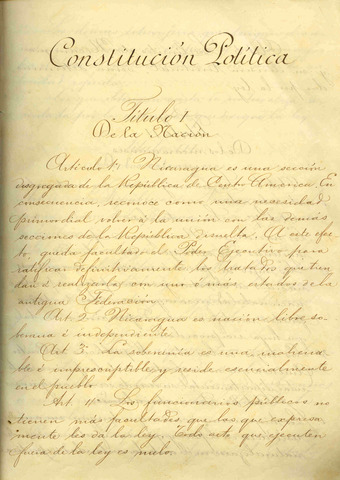 Constitución Política
Título I
De la Nación
Artículo 1º Nicaragua es una sección
disgregada de la República de Centro América. En
consecuencia, reconoce como una necesidad
primordial volver á la unión con las demás
secciones de la República disuelta. A este efec-
to, queda facultado el Poder Ejecutivo para
ratificar definitivamente los tratados que tien-
dan á realizarla, con uno ó más estados de la
antigua Federación.
Art. 2º Nicaragua es nación libre, so-
berana é independiente.
Art. 3º La soberanía es una, inaliena-
ble é imprescriptible y reside esencialmente
en el pueblo.
Art. 4º Los funcionarios públicos no
tienen más facultades que las que expresa-
mente les da la ley. Todo acto que ejecuten
fuera de la ley es nulo.